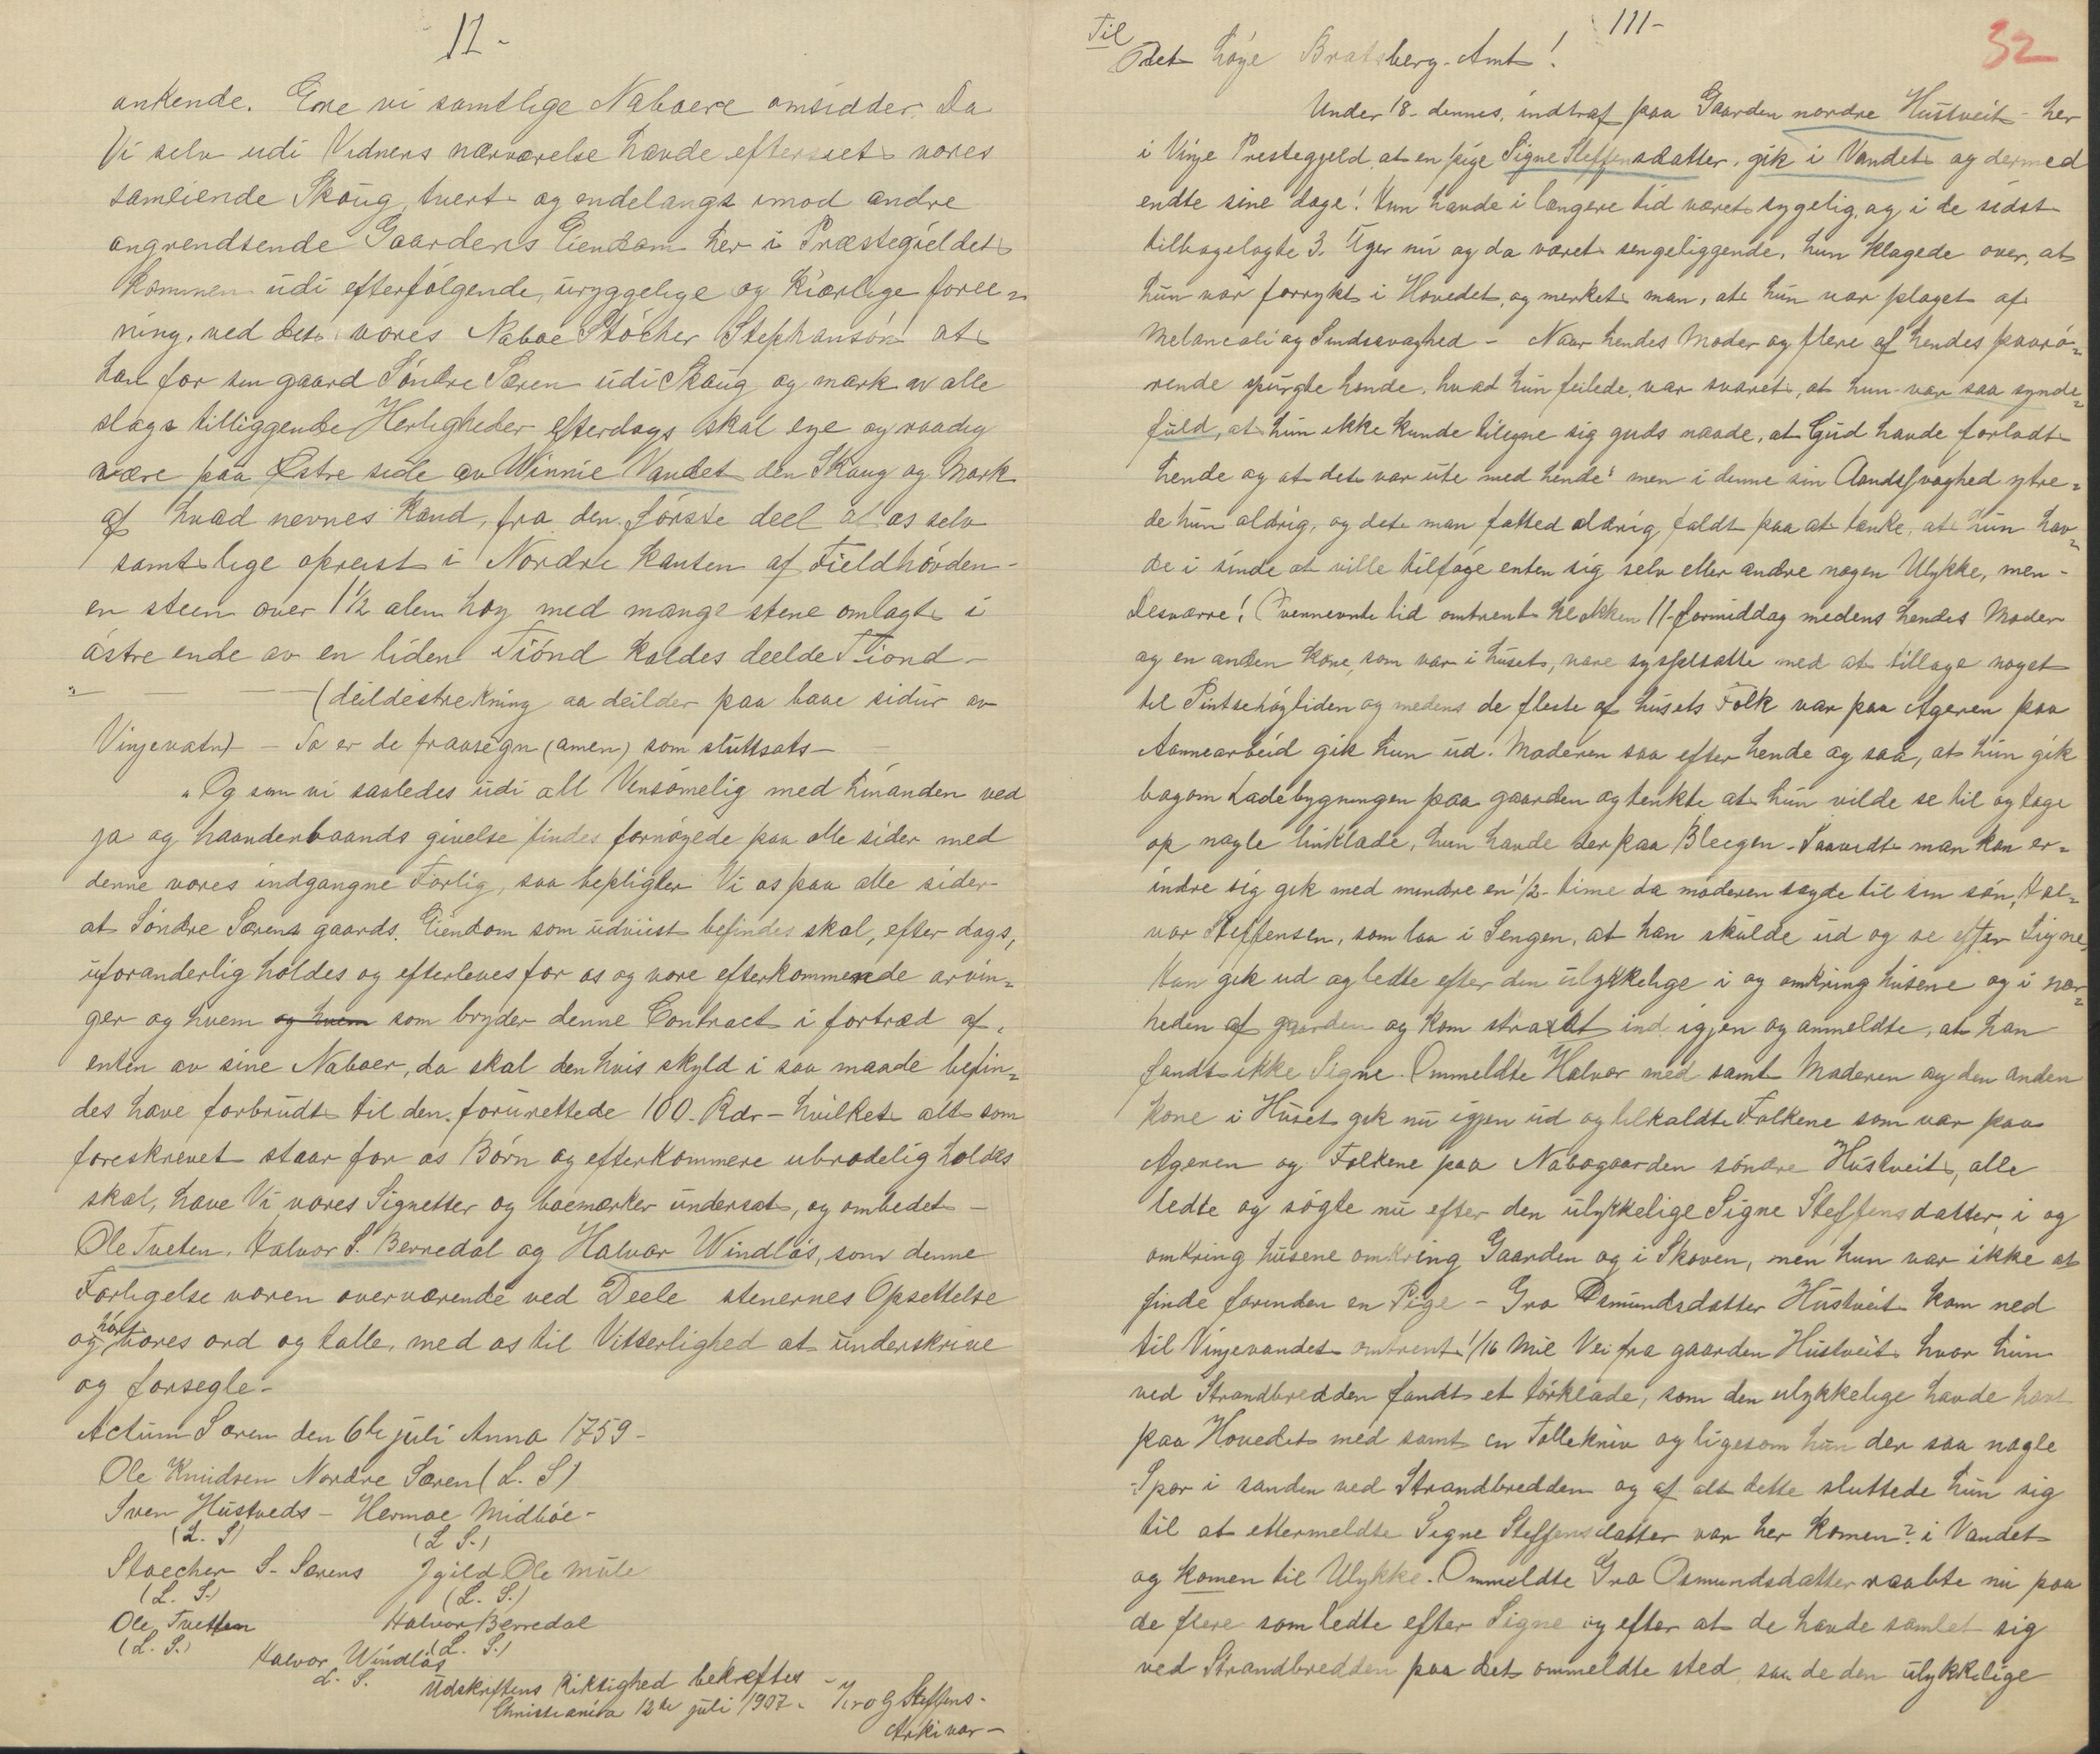 11-
ankende. Ere vi samtlige Naboere omsidder, Da
Vi selv udi Vidners nærværelse havde efterseet vores
samliende Skoug, tvert og endelangs imod andre
angrendsende Gaardens Eiendom her i Præstegieldet
kommen udi efterfølgende, uryggelige og kiærlige foree=
ning, ved det vores Naboe Stöcher Stephansön at
han for sin gaard Söndre Særen udi Skoug og mark av alle
slags tilliggende Herligheder efterdags skal eye og raadig
være paa Østre side av Winnie Vandet den Skoug og Mark
af hvad nevnes kand, fra den förste deel at os selv
samtlige opreist i Nordre kanten af Fieldhövden-
en steen over 1½ alen høy med mange stene omlagt i
östre ende av en liden Tiönd kaldes deelde Tiond-
"— — — (deildestrekning aa deilder paa baae sidur av
Vinjevatn) - So er de fraasegn (amen) som sluttsats-
"Og som vi saaledes udi all Vensömelig med hinanden ved
ja og haandenbaands givelse findes fornöyede paa alle sider med
denne vores indgangne Forlig, saa bepligter Vi os paa alle sider-
at Söndre Særens gaards Eiendom som udviist befindes skal, efter dags,
uforanderlig holdes og efterleves for os og vore efterkommende arvin=
ger og hvem og hvem som bryder denne Contract i fortræd af,
enten av sine Naboer, da skal den hvis skyld i saa maade befin=
des have forbrudt til den forurettede 100. Rdr- hvilket alt som
foreskrevet staar for os Börn og efterkommere ubrodelig holdes
skal, have Vi vores Signetter og boemærker undersat, og ombedet-
Ole Tveten, Halvor S. Berredal og Halvor Windlös, som denne
Forligelse været overværende ved Deele stenernes Opsettelse
og hört vores ord og talle, med os til Vitterlighed at underskrive
og forsegle-
Actum Særen den 6te juli Anno 1759-
Ole Knudsen Nordre Særen (L. S)
Sven Hustveds - Hermoe Midböe-
(L. S) (L S.)
Stoecher S. Særens Jgild Ole Mule
(L. S.) (L. S.)
Ole Tvetten Halvor Berredal
(L. S.) (L. S.)
Halvor Windlös
L. S. Udskriftens Riktighed bekreftes
Christiania 12te juli 1907- Krog Steffens-
Arkivar-
111-
32
Til
Det höje Bratsberg-Amt!
Under 18- dennes, indtraf paa Gaarden nordre Hustveit- her
i Vinje Prestegjeld, at en pige Signe Steffensdatter, gik i Vandet og dermed
endte sine dage! Hun havde i længere tid været sygelig, og i de sidst
tilbagelagte 3. Uger nu og da været sengeliggende, hun klagede over, at
hun var forrykt i Hovedet, og merket man, at hun var plaget af
Melancoli og Sindssvaghed - Naar hendes Moder og flere af hendes paarö=
rende spurgte hende, hvad hun feilede, var svaret, at hun var saa synde=
fuld, at hun ikke kunde tilegne sig guds naade, at Gud havde forladt
hende og at det var ute med hende" men i denne sin Aandssvaghed ytre=
de hun aldrig, og det man faldt aldrig faldt paa at tænke, at hun hav=
de i sinde at ville tilföye enten sig selv eller andre nogen Ulykke, men-
Desværre! Ovennevnte tid omtrent klokken 11-formiddag medens hendes Moder
og en anden kone, som var i huset, vare sysselsatte med at tillage noget
til Pintsehöytiden og medens de fleste af husets Folk var paa Ageren paa
Aannearbeid gik hun ud. Moderen saa efter hende og saa, at hun gik
bagom Ladebygningen paa gaarden og tenkte at hun vilde se til og tage
op nogle linklæde, hun havde der paa Bleegen. Saavidt man kan er=
indre sig gik med mindre en 1/2- time da moderen sagde til sin sön, Hal=
vor Steffensen, som laa i Sengen, at han skulde ud og se efter Signe,
Han gik ud og ledte efter den ulykkelige i og omkring husene og i nær=
heden af gaarden og kom straxt ind igjen og anmeldte, at han
fandt ikke Signe. Ommeldte Halvor med samt Moderen og den anden
kone i Huset gik nu igjen ud og tilkaldte Folkene som var paa
Ageren og Folkene paa Nabogaarden söndre Hustveit, alle
ledte og sögte nu efter den ulykkelige Signe Steffensdatter i og
omkring husene omkring Gaarden og i Skoven, men hun var ikke at
finde forinden en Pige - Gro Osmundsdatter Hustveit kom ned
til Vinjevandet omtrent 1/16 Mil Vei fra gaarden Hustveit hvor hun
ved Strandbredden fandt et törklæde, som den ulykkelige havde havt
paa Hovedet med samt en Tollekniv og ligesom hun der saa nogle
Spor i sanden ved Strandbredden og af alt dette sluttede hun sig
til at ettermeldte Signe Steffensdatter var her komen? i Vandet
og komen til Ulykke. Ommeldte Gro Osmundsdatter raabte nu paa
de flere som ledte efter Signe og efter at de havde samlet sig
ved Strandbredden paa det ommeldte sted, saa de den ulykkelige